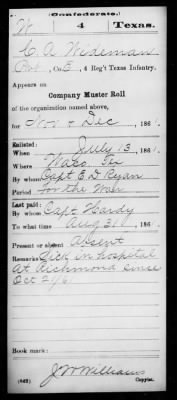 (Confederate.)
W 4 Texas.
C. A. Wideman
Pvt, Co. E, 4 Reg't Texas Infantry.
Appears on
Company Muster Roll
of the organization named above,
for Nov & Dec, 1861.
Enlisted:
When July 13, 1861.
Where Waco Tex
By whom Capt E. D. Ryan
Period For the War
Last paid:
By whom Capt. Hardy
To what time Aug 31, 1861.
Present or absent Absent
Remarks: Sick in hospital
at Richmond since
Oct 21/61
Book mark:
J W Williams
(642) Copyist.